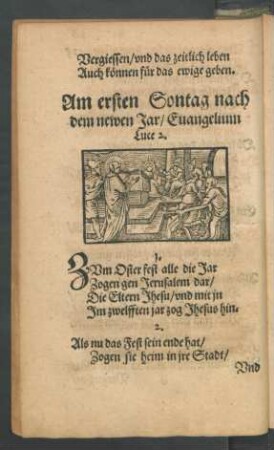 Vergiessen/vnd das zeitlich leben
Auch können für das ewige geben.
Am ersten Sontag nach
dem newen Jar/ Euangelium
Luce 2.
1.
ZVm Osterfest alle die Jar
Zogen gen Jerusalem dar/
Die Eltern Jhesu/vnd mit jn
Im zwelfften jar zog Jhesus hin.
2.
Als nu das Fest sein ende hat/
Zogen sie heim in jre Stadt/
Vnd